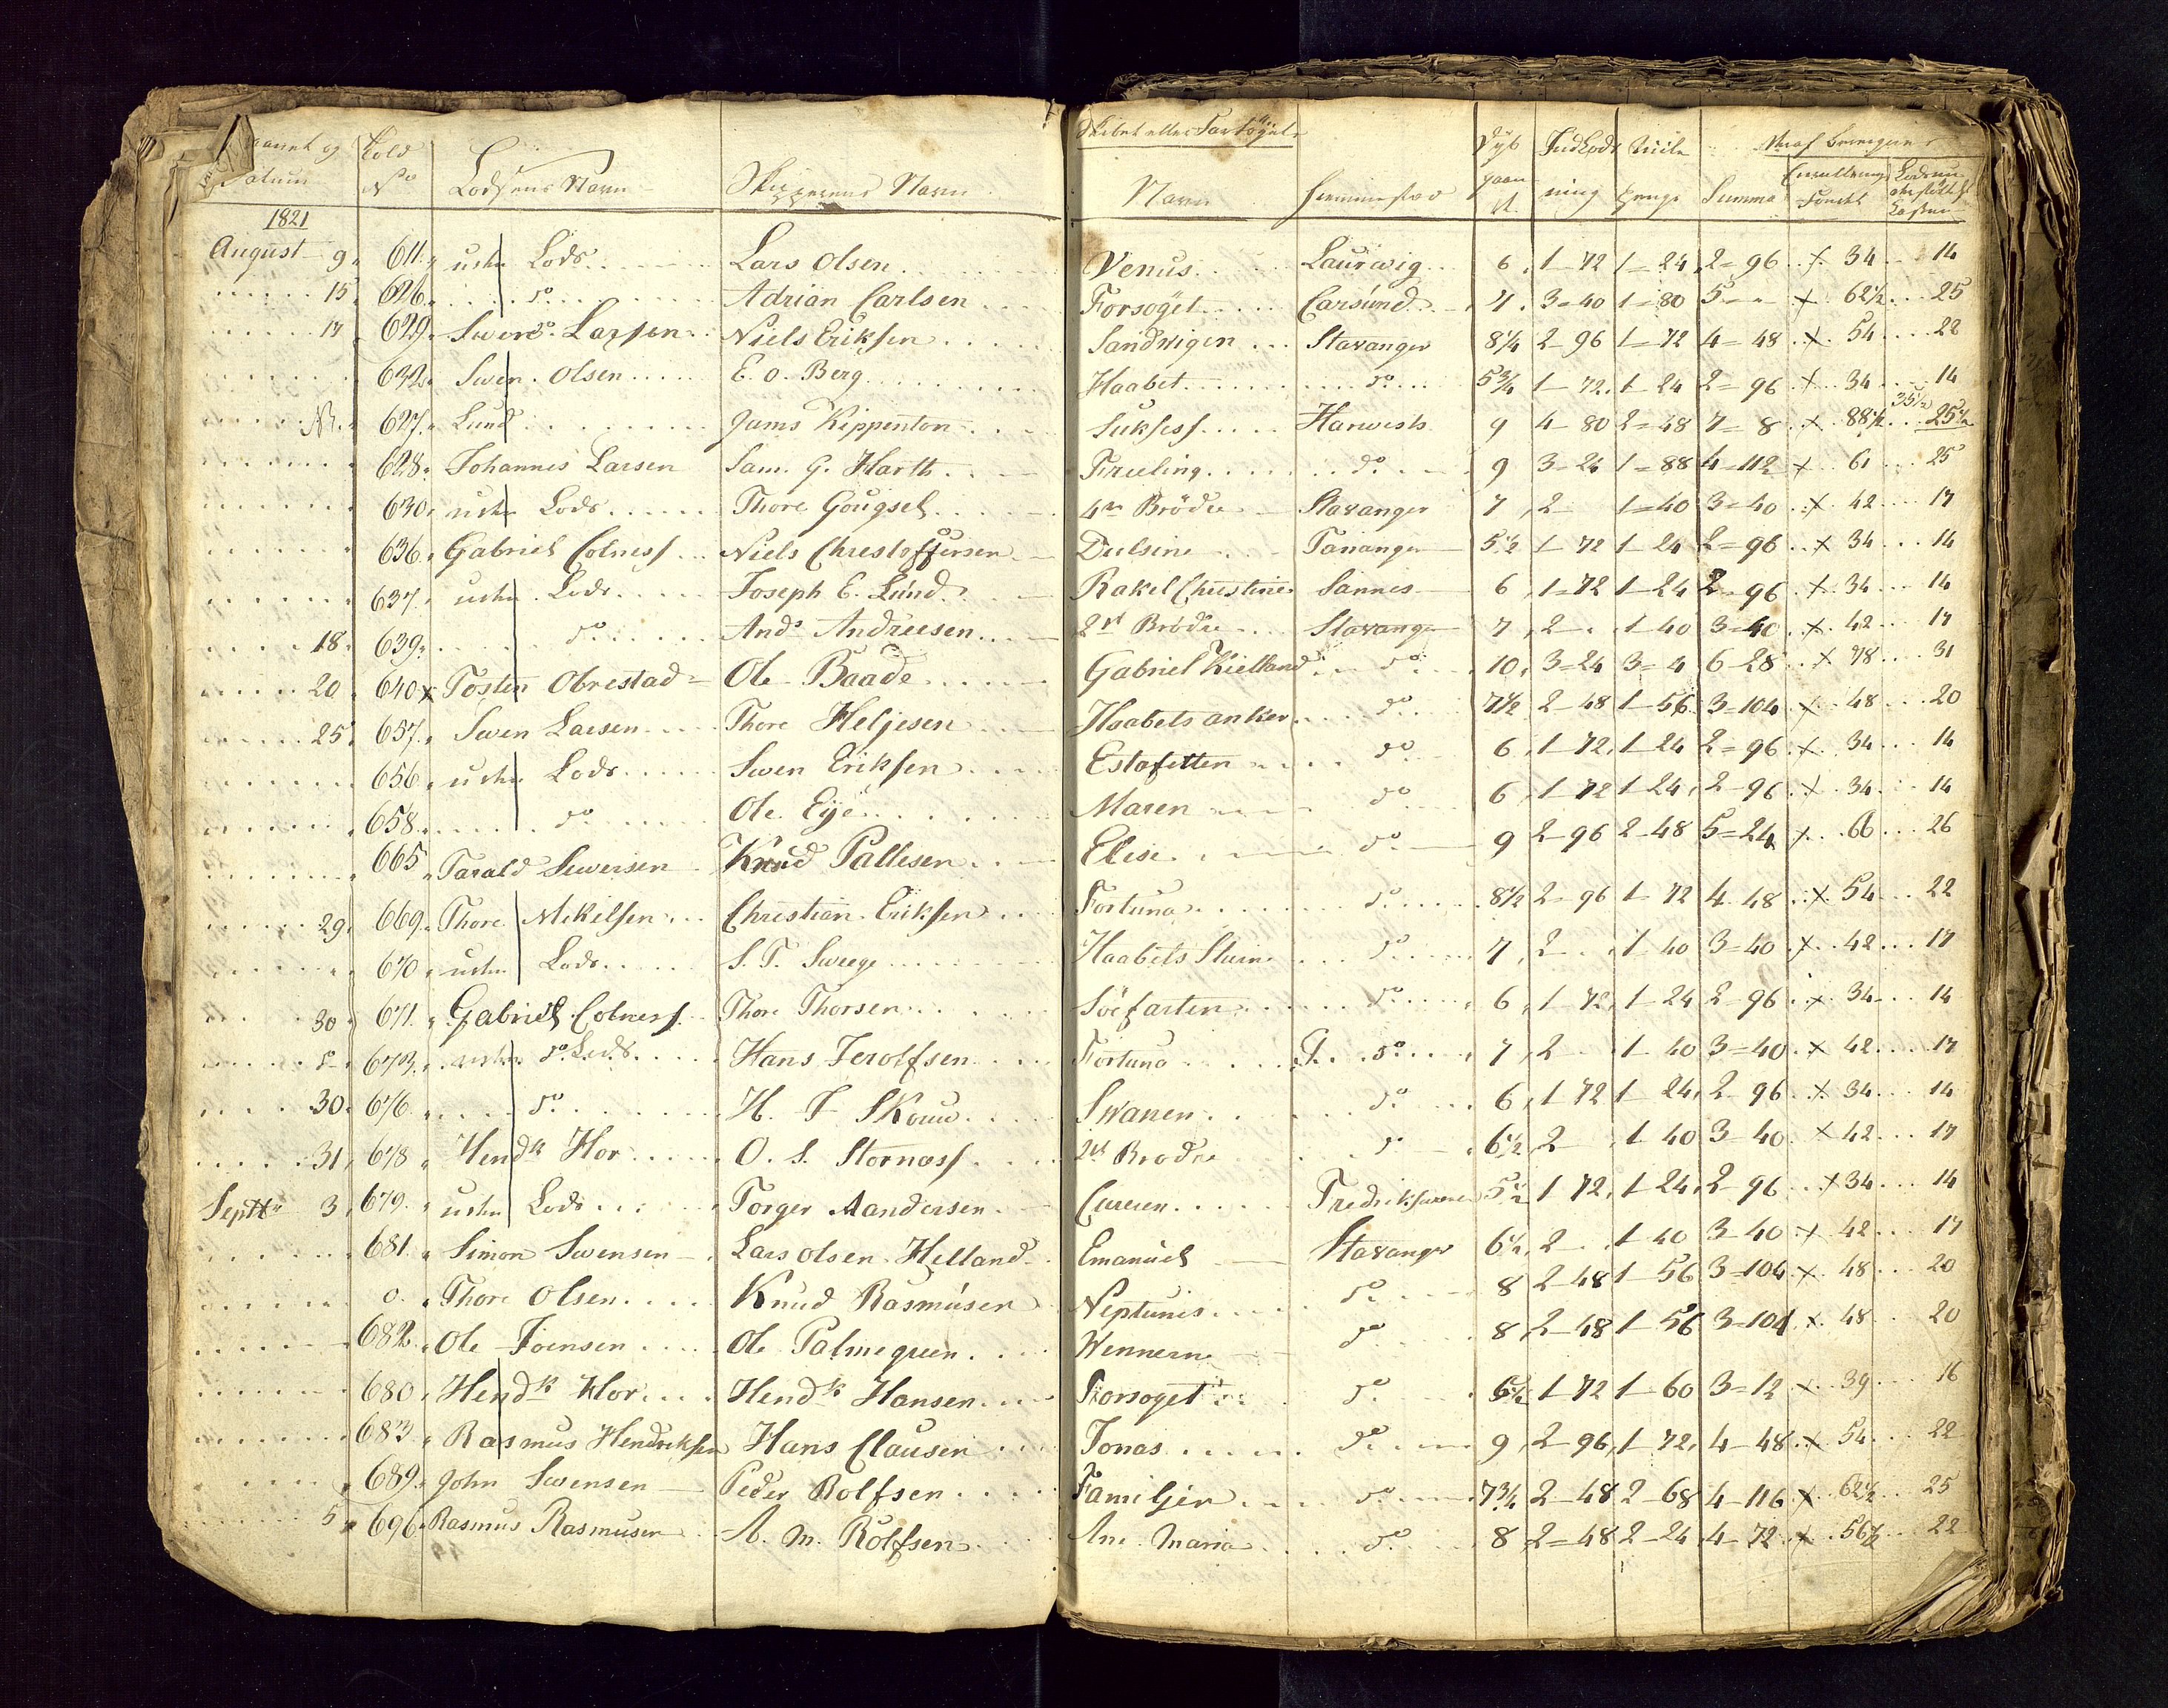 Datum
No
Lodsens Navn
Skipperens Navn
Skibet eller Fartøyets
Navn
Hiemmestæd
Dyb gaaende
Indlodsning
Miile penge
Summa
1821
August 9. 611. usÿn Lods Lars Olsen Venus Laurwig 6 1-72 1-24 2-96 x 34 14
15. 626. do Adrian Carlsen Forsøget Carsund 7 3-40 1-80 5-- x 62½ 25
17. 629. Swend Larsen Niels Eriksen Sandvigen Stavanger 8¼ 2-96 1-72 4-48 x 54 22
632. Swen Olsen E. O. Berg Haabet do 5¾ 1-72 1-24 2-96 x 34 14
627. Lund Jams Kippenton Suksess Harwich 9 4-80 2-48 7-8 x 88½ 35½ 25½
628. Johannes Larsen Sam. G. Harth Freeling do 9 3-24 1-88 4-112 x 61 25
630. Lods Thore Gougsel 4re Brødre Stavanger 7 2 1-40 3-40 x 42 17
636. Gabriel Colness Niels Christoffersen Delsine Tananger 5½ 1-72 1-24 2-96 x 34 14
637. Lods Joseph E. Lund Rakel Christine Sannes 6 1-72 1-24 2-96 x 34 14
18. 639. do Ands Andreesen 2de Brødre Stavanger 7 2 1-40 3-40 x 42 17
20 640 x Tosten Obrestad Ole Baade Gabriel Kielland do 10 3-24 3-4 6-28 x 78 31
25. 657. Swen Larsen Thore Heljesen Haabets anker do 7½ 2-48 1-56 3-104 x 48 20
656. Lods Swen Eriksen Estafetten do 6 1-72 1-24 2-96 x 34 14
658. do Ole Eye Maren do 6 1-72 1-24 2-96 x 34 14
665 Tarald Sewersen Knud Pallesen Elise do 9 2-96 2-48 5-24 x 66 26
29. 669. Thore Mikelsen Christian Eriksen Fortuna do 8½ 2-96 1-72 4-48 x 54 22
670. Lods S. T. Sweege Haabets do 7 2 1-40 3-40 x 42 17
30. 671. Gabriel Colness Thore Thorsen Søefarten do 6 1-72 1-24 2-96 x 34 14
673. do Lods Hans Jerolfsen Fortuna do 7 2 1-40 3-40 x 42 17
30. 676. do H. J. Skouw Swanen do 6 1-72 1-24 2-96 x 34 14
31. 678. Hendk Hor O. S. Stornass 2de Brødre do 6½ 2 1-40 3-40 x 42 17
Septbr 3. 679. Lods Torger Aandersen Fredriksværn 5½ 1-72 1-24 2-96 x 34 14
681. Simon Swensen Lars Olsen Helland Emanuel Stavanger 6½ 2 1-40 3-40 x 42 17
0. Thore Olsen Knud Rasmusen Neptunis do 8 2-48 1-56 3-104 x 48 20
682. Ole Joensen Ole Palmegreen Wennerne do 8 2-48 1-56 3-104 x 48 20
680. Hendk Hor Hendk Hansen Forsøget do 6½ 1-72 1-60 3-12 x 39 16
683. Rasmus Hendriksen Hans Clausen Jonas do 9 2-96 1-72 4-48 x 54 22
689. John Swensen Peder Rolfsen Familjen do 7¾ 2-48 2-68 4-116 x 62½ 25
5. 696. Rasmus Rasmusen A. M. Rolfsen Ane Maria do 8 2-48 2-24 4-72 x 56½ 22